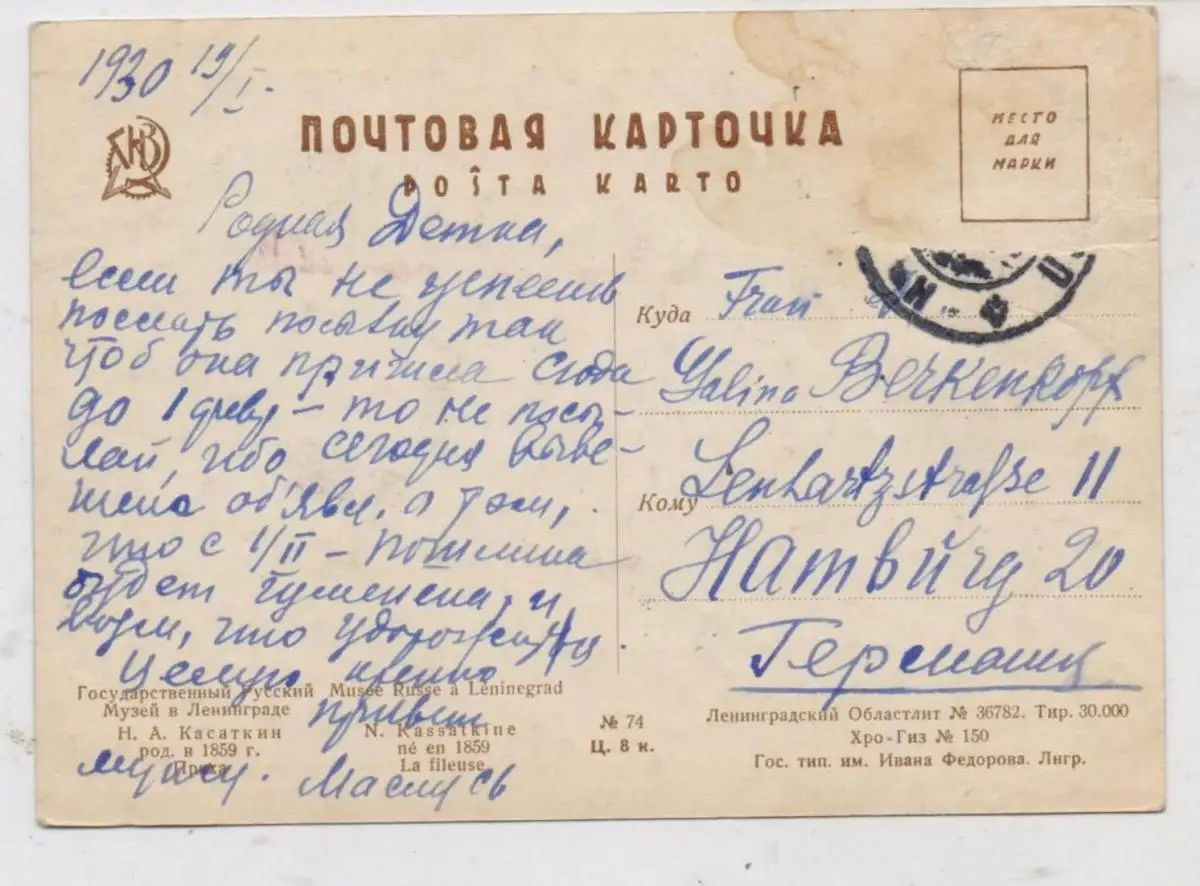 1930 19/I.
ПОЧТОВАЯ КАРТОЧКА
POŜTA KARTO
МЕСТО
ДЛЯ
МАРКИ
Родная Детка,
если ты не успеешь
послать посылку так
чтоб она пришла сюда
до 1 февр — то не посы-
лай, ибо сегодня выве-
шена об'явл. о том,
что с 1/II — пошлина
будет
что
Целую крепко
привет
мужу. Масюсь
Куда Frau
Galina Berkenkopf
Кому Lenhartzstraße 11
Hamburg 20
Германия
Государственный Русский
Музей в Ленинграде
Н. А. Касаткин
род. в 1859 г.
Пряха
Musée Russe à Léninegrad
N. Kassatkine
né en 1859
La fileuse
№ 74
Ц. 8 к.
Ленинградский Областлит № 36782. Тир. 30.000
Хро-Гиз № 150
Гос. тип. им. Ивана Федорова. Лнгр.